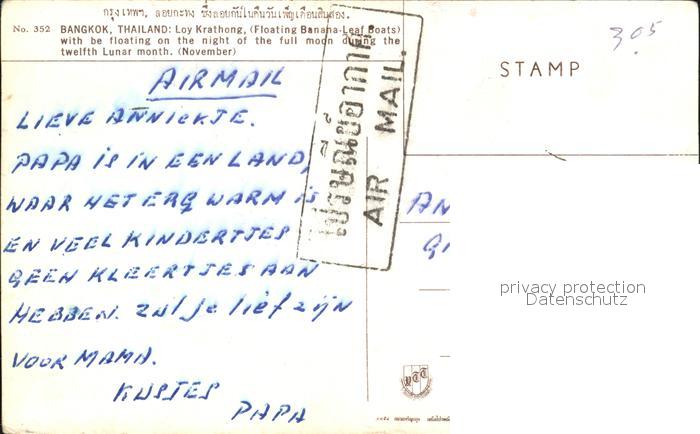 กรุงเทพฯ, ลอยกะทง ซึ่งลอยกันในคืนวันเพ็ญเดือนสิบสอง.
No. 352 BANGKOK, THAILAND: Loy Krathong, (Floating Banana-Leaf Boats)
with be floating on the night of the full moon during the
twelfth Lunar month. (November)
305
STAMP
AIRMAIL
ไปรษณีย์อากาศ
AIR MAIL.
LIEVE ANNICKJE.
PAPA IS IN EEN LAND,
WAAR HET ERG WARM IS
EN VEEL KINDERTJES
GEEN KLEERTJES AAN
HEBBEN. Zul je lief zijn
VOOR MAMA.
KUSJES
PAPA
AN
GI
privacy protection
Datenschutz